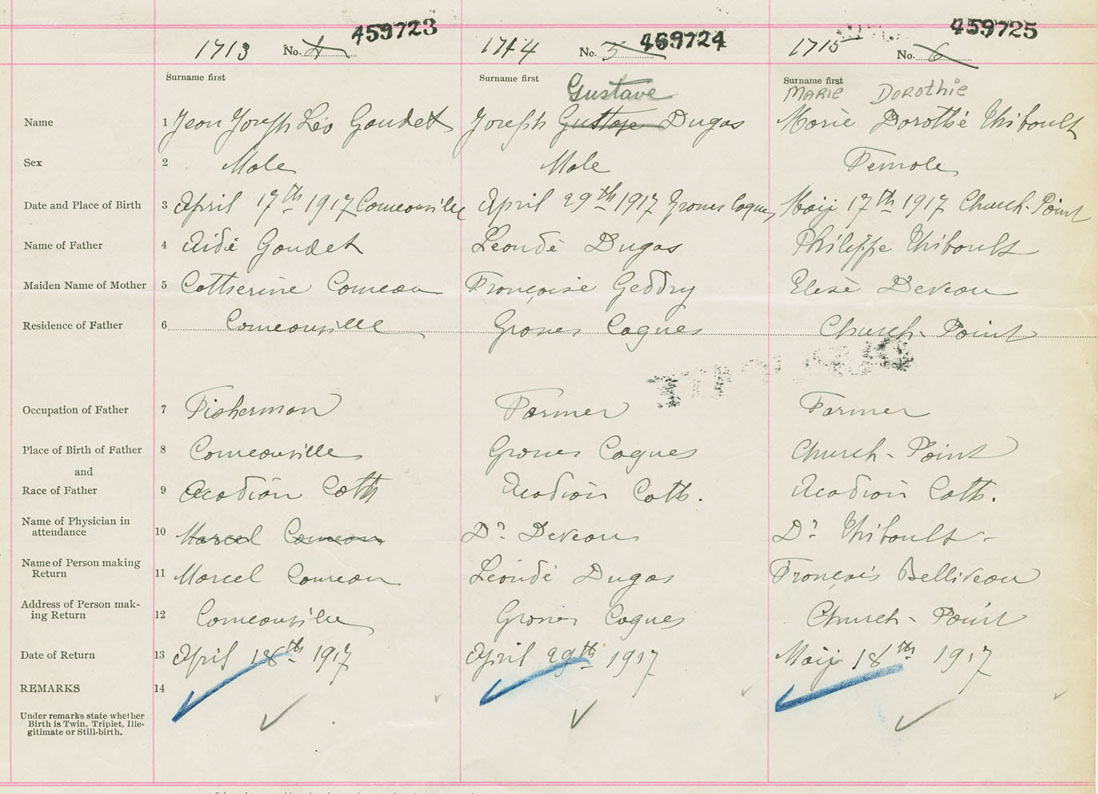 1713 No. 4 459723 1714 No. 5 459724 1715 No. 6 459725
Surname first Surname first Surname first
Gustave MARIE DOROTHIE
Name 1 Jean Joseph Léo Gaudet Joseph Dugas Marie Dorothé Thibault
Sex 2 Male Male Female
Date and Place of Birth 3 April 17th 1917 Comeauville April 29th 1917 Grosses Coques Maij 17th 1917 Church-Point
Name of Father 4 Aidé Gaudet Léandé Dugas Philippe Thibault
Maiden Name of Mother 5 Catherine Comeau Françoise Geddry Elesè Deveau
Residence of Father 6 Comeauville Groses Coques Church-Point
Occupation of Father 7 Fisherman Farmer Farmer
Place of Birth of Father 8 Comeauville Groses Coques Church-Point
and
Race of Father 9 Acadian Cath Acadian Cath. Acadian Cath.
Name of Physician in
attendance 10 Marcel Comeau Dr Deveau Dr Thibault
Name of Person making
Return 11 Marcel Comeau Léandé Dugas François Belliveau
Address of Person mak-
ing Return 12 Comeauville Groses Coques Church-Point
Date of Return 13 April 18th 1917 April 29th 1917 Maij 18th 1917
REMARKS 14
Under remarks state whether
Birth is Twin, Triplet, Ille-
gitimate or Still-birth.